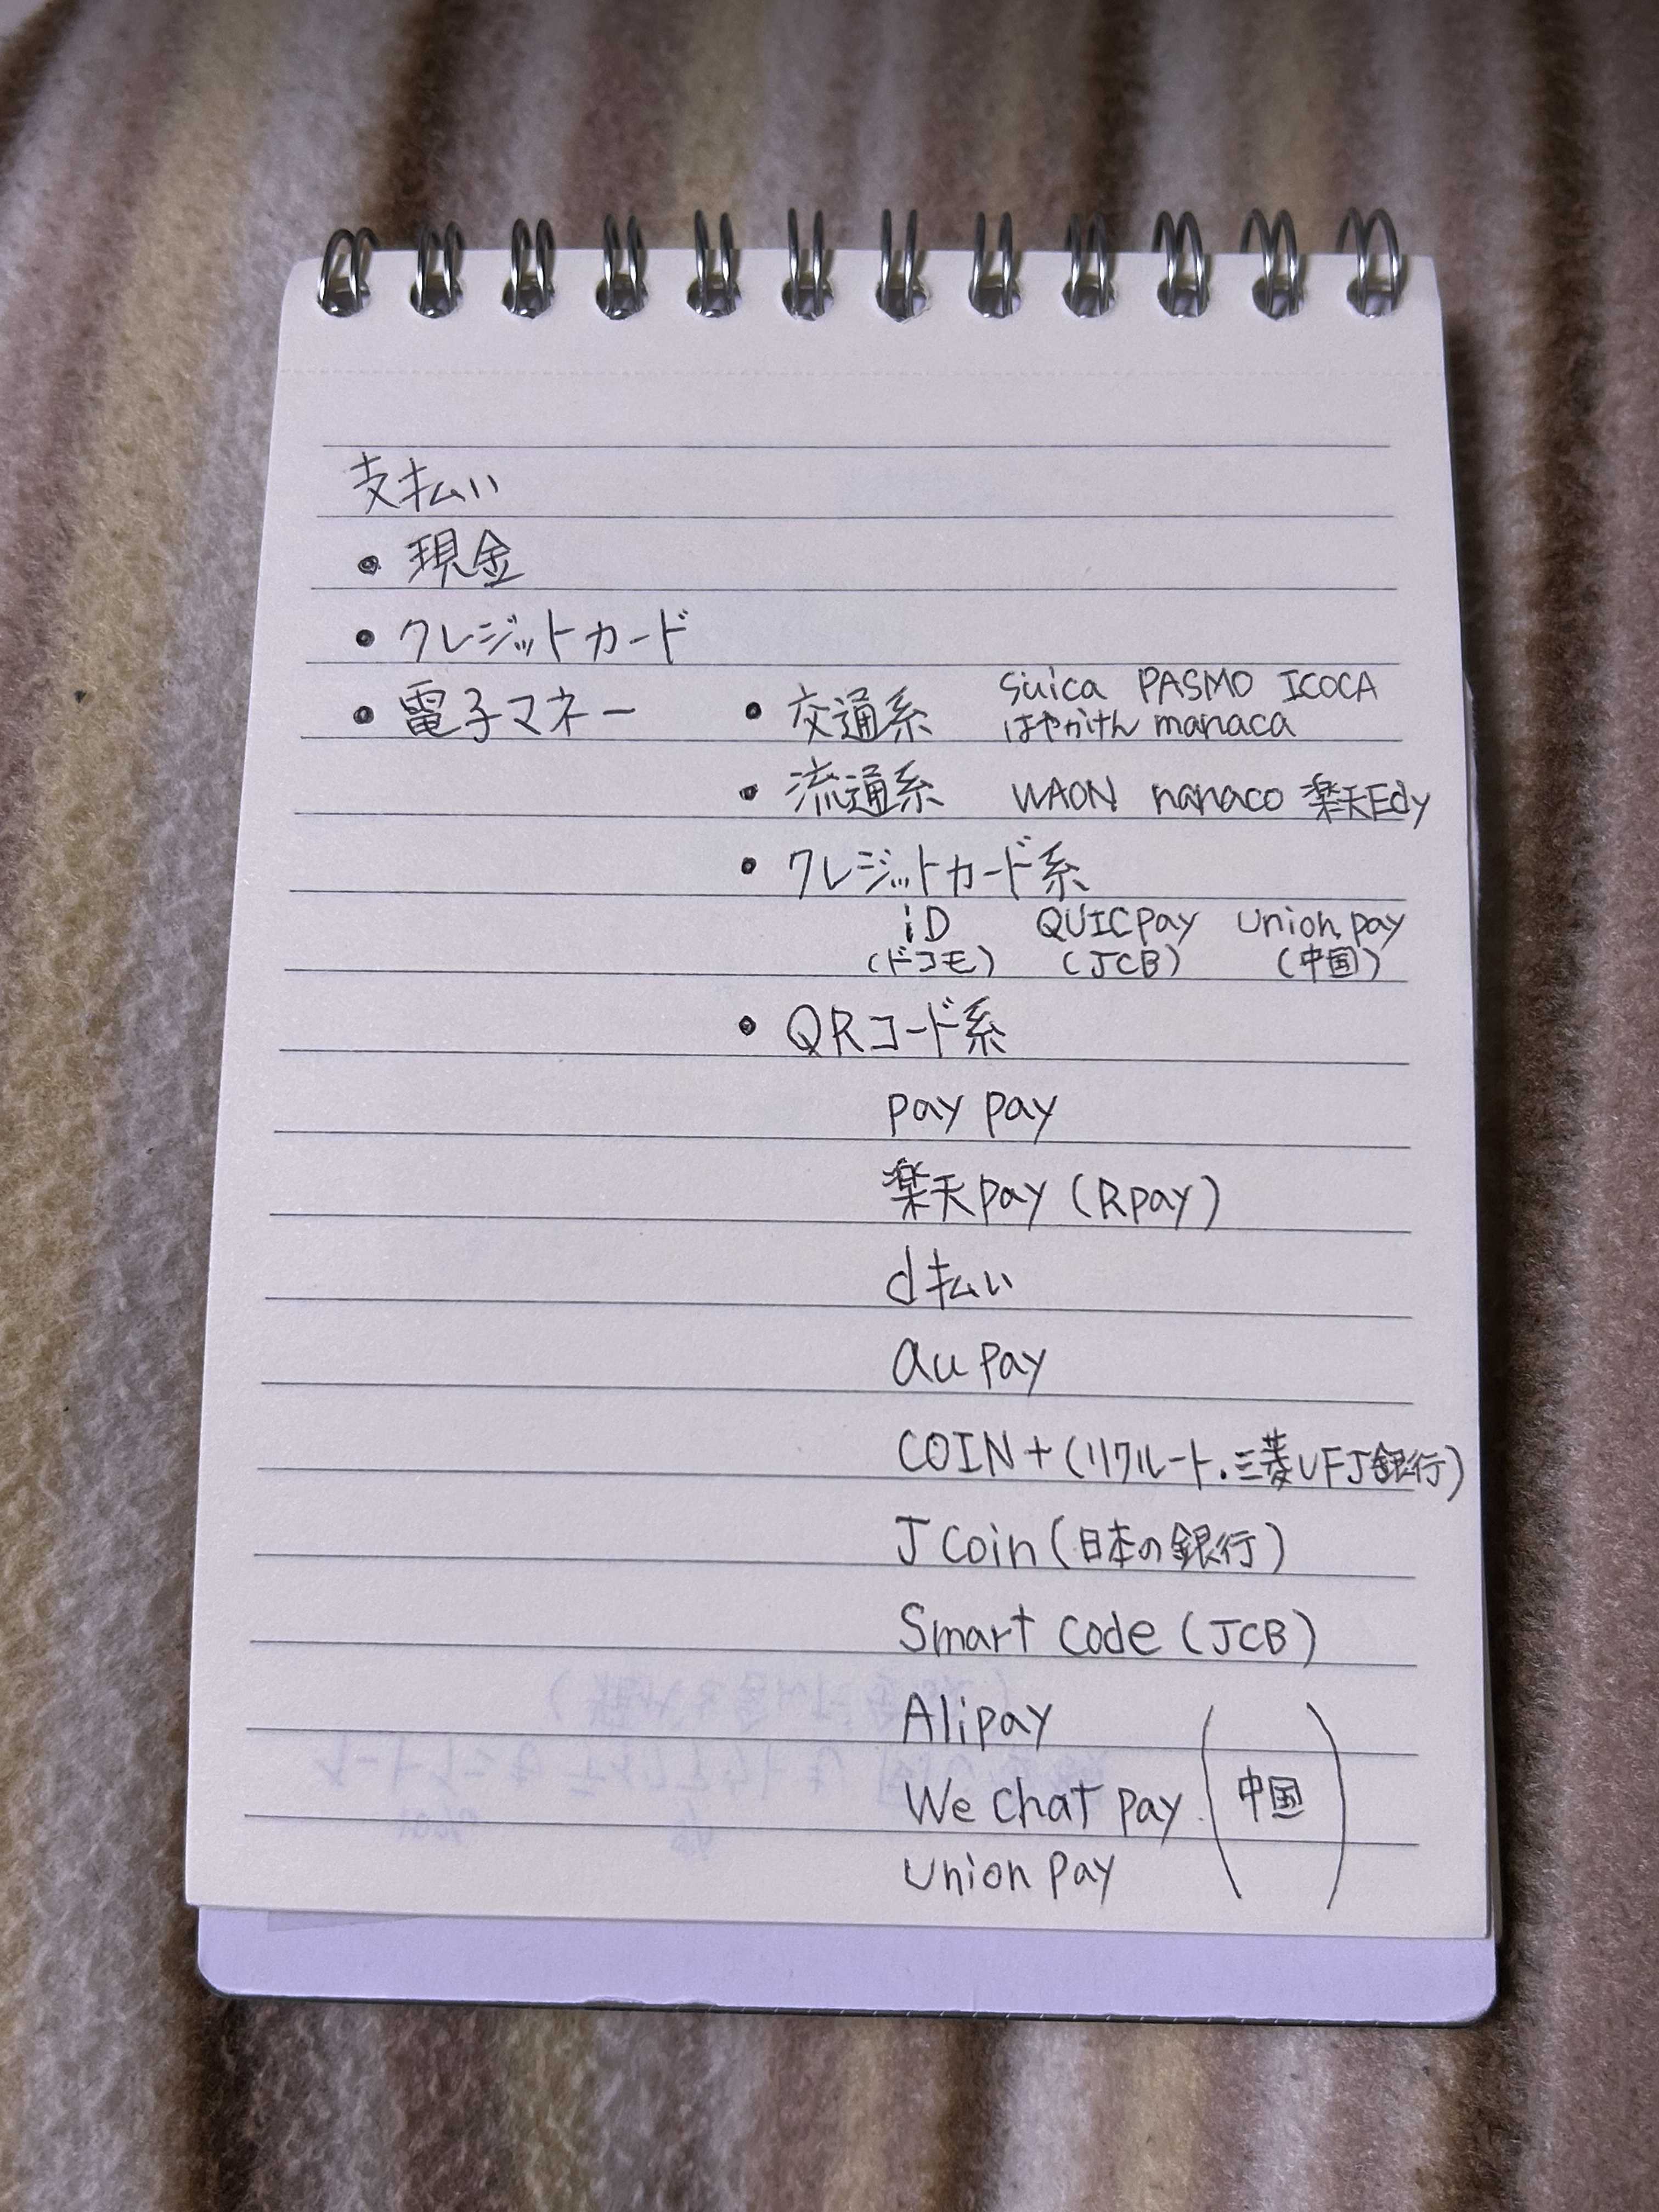 支払い
• 現金
• クレジットカード
• 電子マネー • 交通系 Suica PASMO ICOCA
はやかけん manaca
• 流通系 WAON nanaco 楽天Edy
• クレジットカード系
iD QUICPay Union pay
(ドコモ) (JCB) (中国)
• QRコード系
pay pay
楽天pay (Rpay)
d払い
au pay
COIN+(リクルート.三菱UFJ銀行)
J Coin(日本の銀行)
Smart Code (JCB)
Alipay
We chat pay (中国)
Union Pay